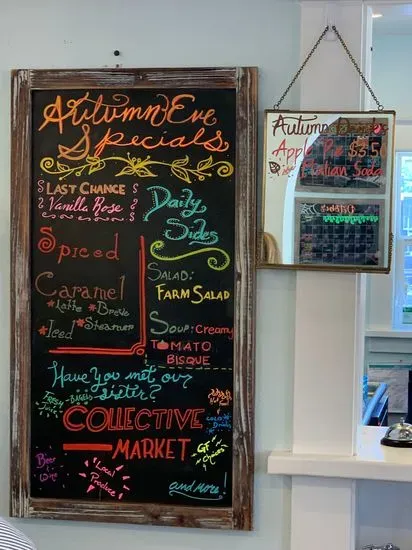 Autumn Eve
Specials
Last Chance
Vanilla Rose
Daily
Sides
Spiced
Caramel
*Latte *Breve
*Iced *Steamer
Salad:
Farm Salad
Soup: Creamy
Tomato
Bisque
Have you met our
sister?
Fresh
Juice
Bagels
Hot
Food
Cold
Drinks
Collective
Market
GF
Choices
Beer
& Wine
Local
Produce
and more!
Autumn Drinks
Apple Pie $3.50
Italian Soda